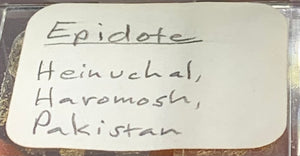 Epidote
Heinuchal,
Haromosh,
Pakistan